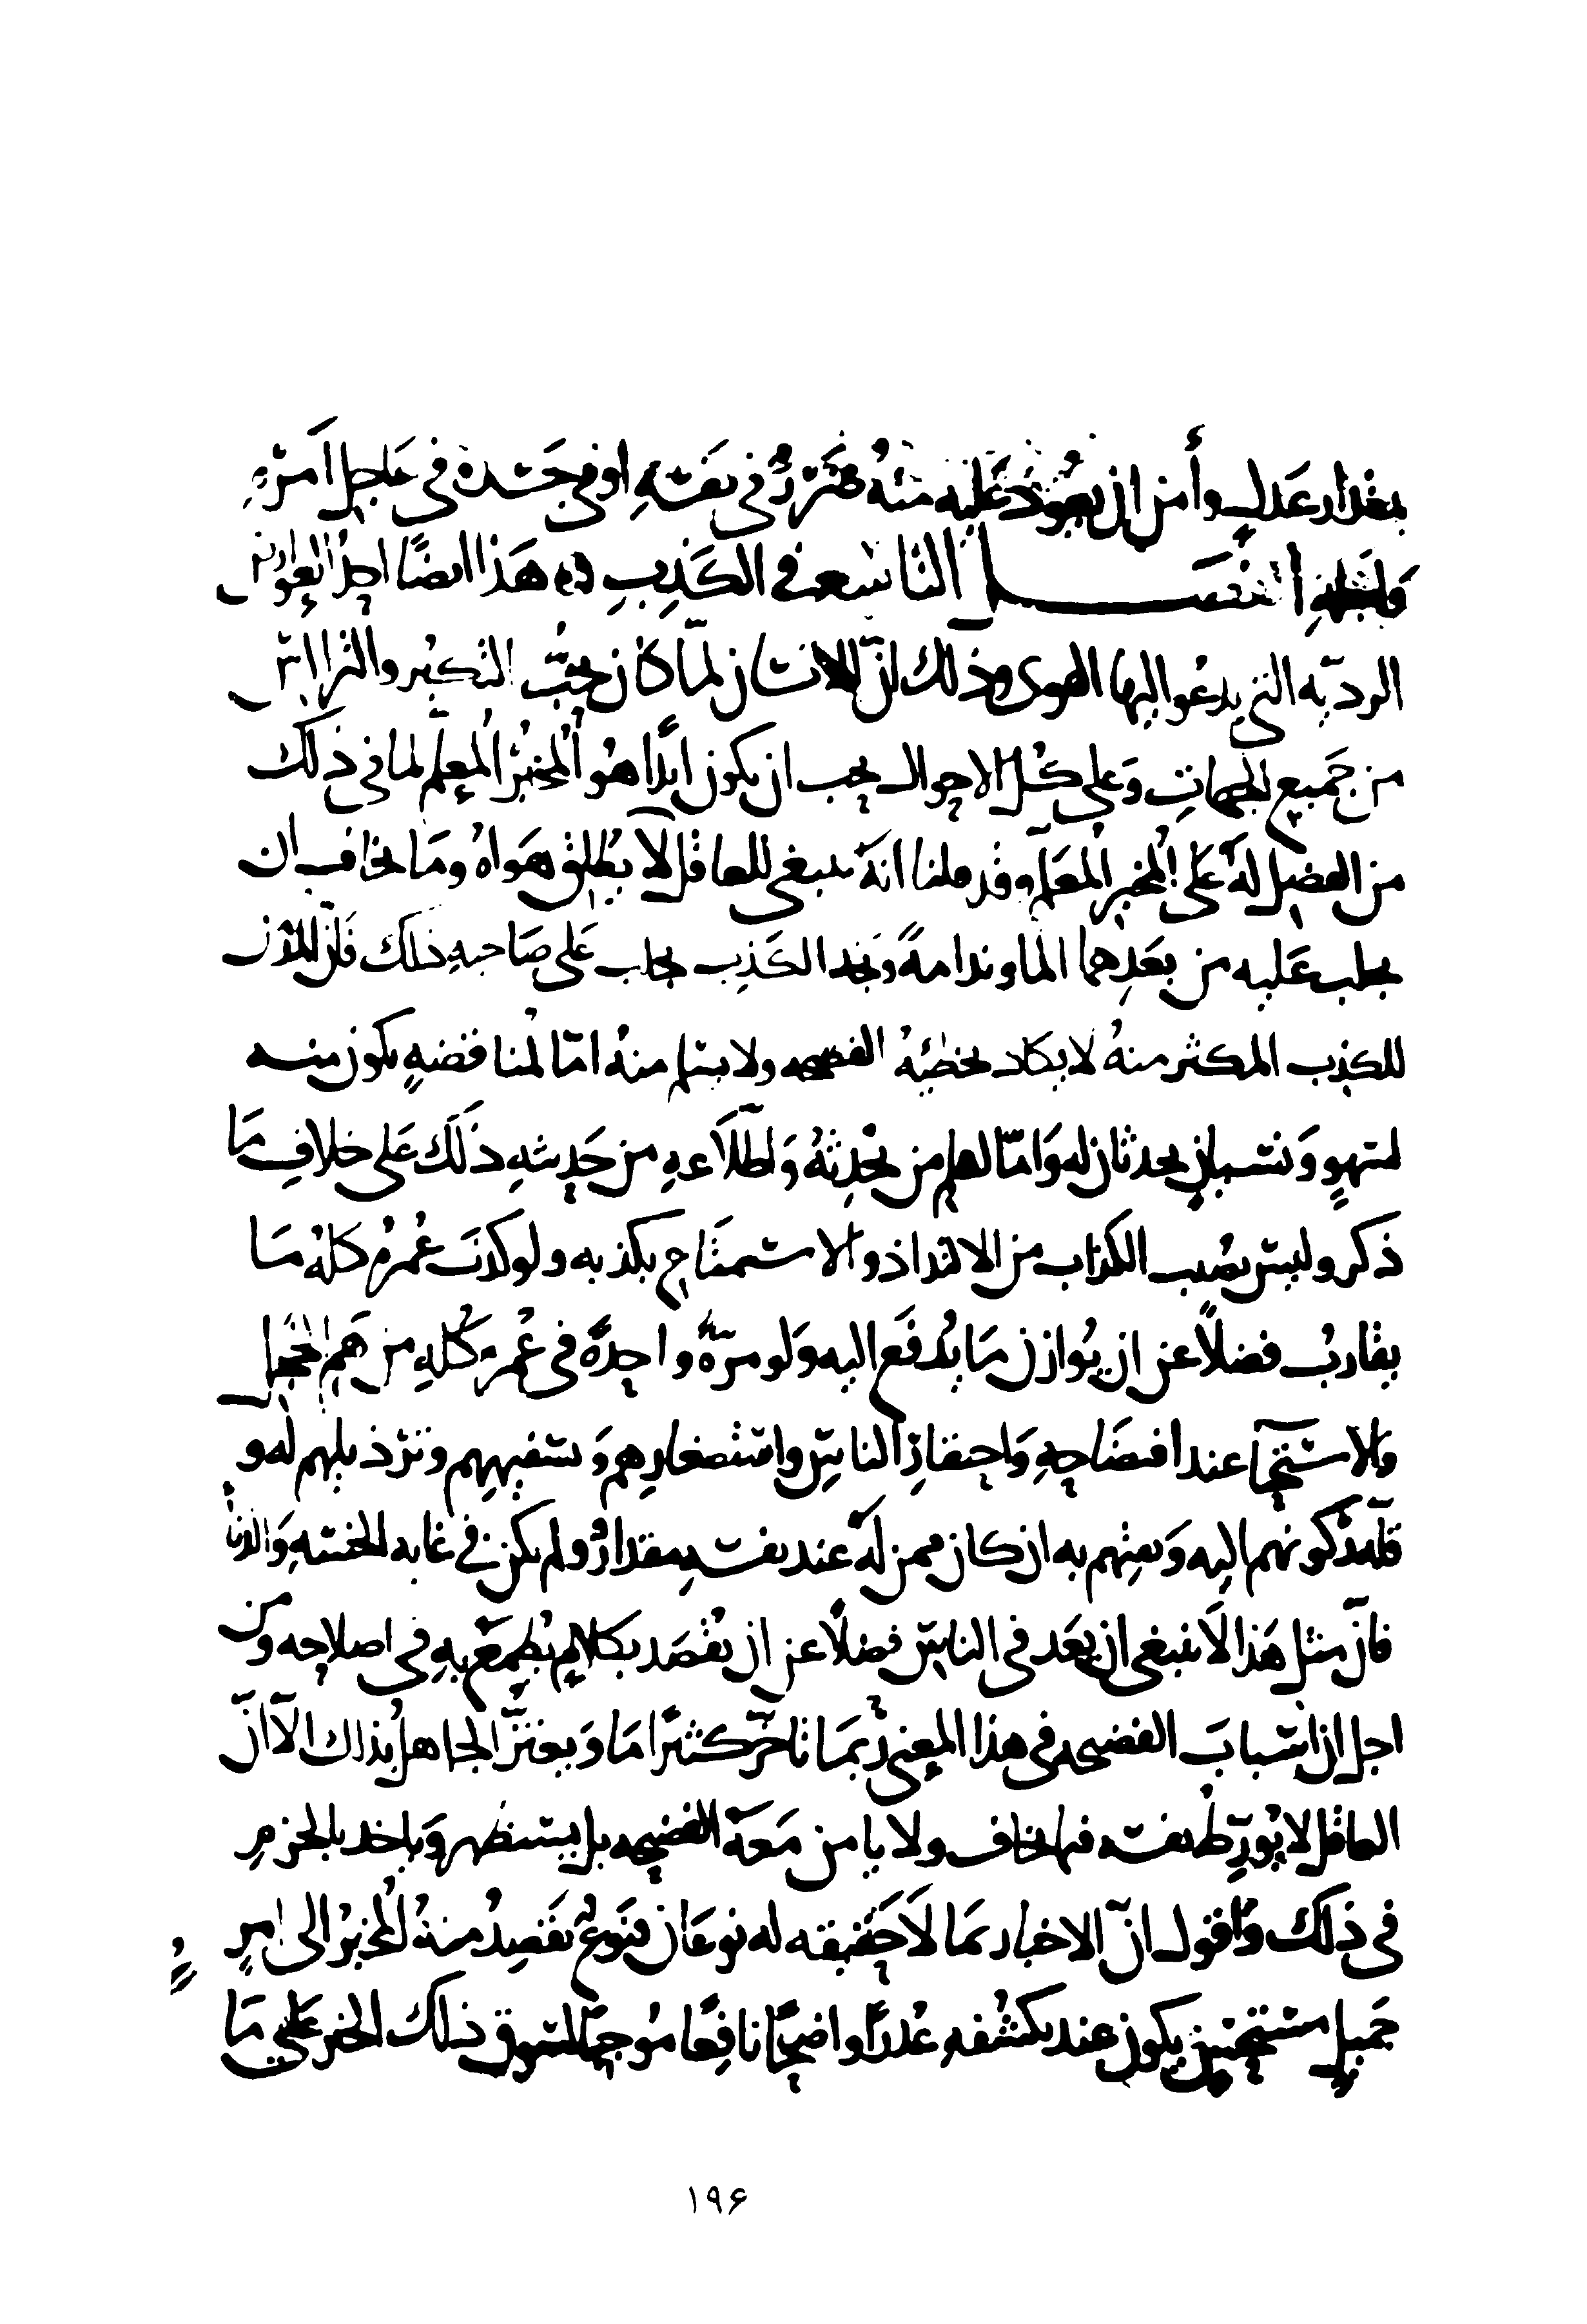 بمقدار عدل وأمن ان يعود عليه منه ضرر في نفسه او في جسده في عاجل امره
وآجله الفصل التاسع في الكذب هذا ايضا احد العوارض
الرديه التي يدعو اليها الهوى وذلك لأن الانسان لما كان يحب التكبر والتراس
من جميع الجهات وعلى كل الاحوال يحب ان يكون ابدا هو المخبر المعلم لما في ذلك
من الفضل له على المخبر المعلم وقد قلنا انه ينبغي للعاقل الا يطلق هواه وما يخاف ان
يجلب عليه من بعدهما الما وندامة ونجد الكذب يجلب على صاحبه ذلك فان المدمن
للكذب المكثر منه لا يكاد يخطئه الفضيحه ولا يسلم منه اما لمناقضه يكون منه
لسهو ونسيان يحدثان له واما لعلم من يحدثه واطلاعه من حديثه ذلك على خلاف ما
ذكر وليس يصيب الكذاب من الالتذاذ والاستمتاع بكذبه ولو كذب عمره كله ما
يقارب فضلا عن ان يوازن ما يدفع اليه ولو مرة واحدة في عمره كله من هم الخجل
والاستحيا عند افتضاحه واحتقار الناس واستصغارهم وتسفيههم وترذيلهم له و
قلة ركونهم اليه وثقتهم به ان كان ممن له عند نفسه مقدار ولم يكن في غايه الخسه والدناة
فان مثل هذا لا ينبغي ان يعد في الناس فضلا عن ان يقصد بكلام يطمع به في اصلاحه ومن
اجل ان اسباب الفضيحه في هذا المعنى ربما تاخر كثيرا ما ويغتر الجاهل بذلك الا ان
العاقل لا يورط نفسه فيما يخاف ولا يامن معه الفضيحه بل يستظهر وياخذ بالحزم
في ذلك واقول ان الاخبار بما لا حقيقه له نوعان فنوع يقصد منه المخبر الى امر
جميل مستحسن يكون عند تكشفه عذرا واضحا نافعا موجبا لسوق ذلك الخبر على ما
۱۹۶